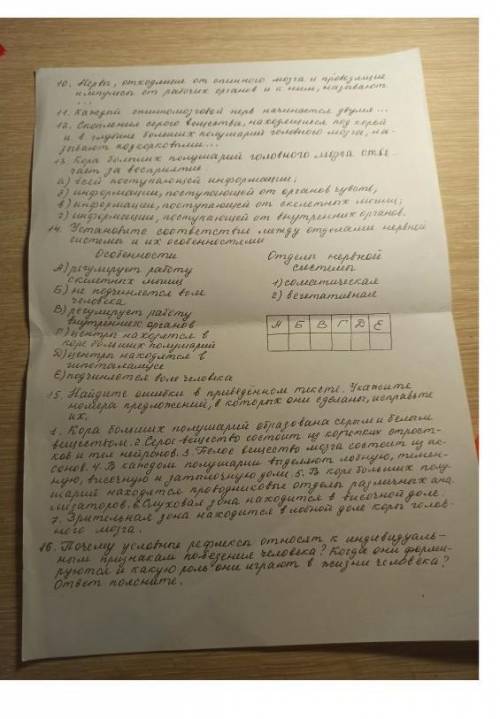 10. Нервы, отходящие от спинного мозга и проводящие
импульсы от рабочих органов и к ним, называют
...
11. Каждый спинномозговой нерв начинается двумя...
12. Скопления серого вещества, находящиеся под корой
и в глубине больших полушарий головного мозга, на-
зывают подкорковыми...
13. Кора больших полушарий головного мозга отве-
чает за восприятие
а) всей поступающей информации;
б) информации, поступающей от органов чувств;
в) информации, поступающей от скелетных мышц;
г) информации, поступающей от внутренних органов.
14. Установите соответствие между отделами нервной
системы и их особенностями
Особенности Отделы нервной
системы
А) регулирует работу
скелетных мышц 1) соматическая
Б) не подчиняется воле 2) вегетативная
человека
В) регулирует работу
внутренних органов А Б В Г Д Е
Г) центры находятся в
коре больших полушарий
Д) центры находятся в
гипоталамусе
Е) подчиняется воле человека
15. Найдите ошибки в приведённом тексте. Укажите
номера предложений, в которых они сделаны, исправьте
их.
1. Кора больших полушарий образована серым и белым
веществом. 2. Серое вещество состоит из коротких отрост-
ков и тел нейронов. 3. Белое вещество мозга состоит из ак-
сонов. 4. В каждом полушарии выделяют лобную, темен-
ную, височную и затылочную доли. 5. В коре больших полу-
шарий находятся проводниковые отделы различных ана
лизаторов. 6. Слуховая зона находится в височной доле.
7. Зрительная зона находится в лобной доле коры голов-
ного мозга.
16. Почему условные рефлексы относят к индивидуаль-
ным признакам поведения человека? Когда они форми-
руются и какую роль они играют в жизни человека?
Ответ поясните.